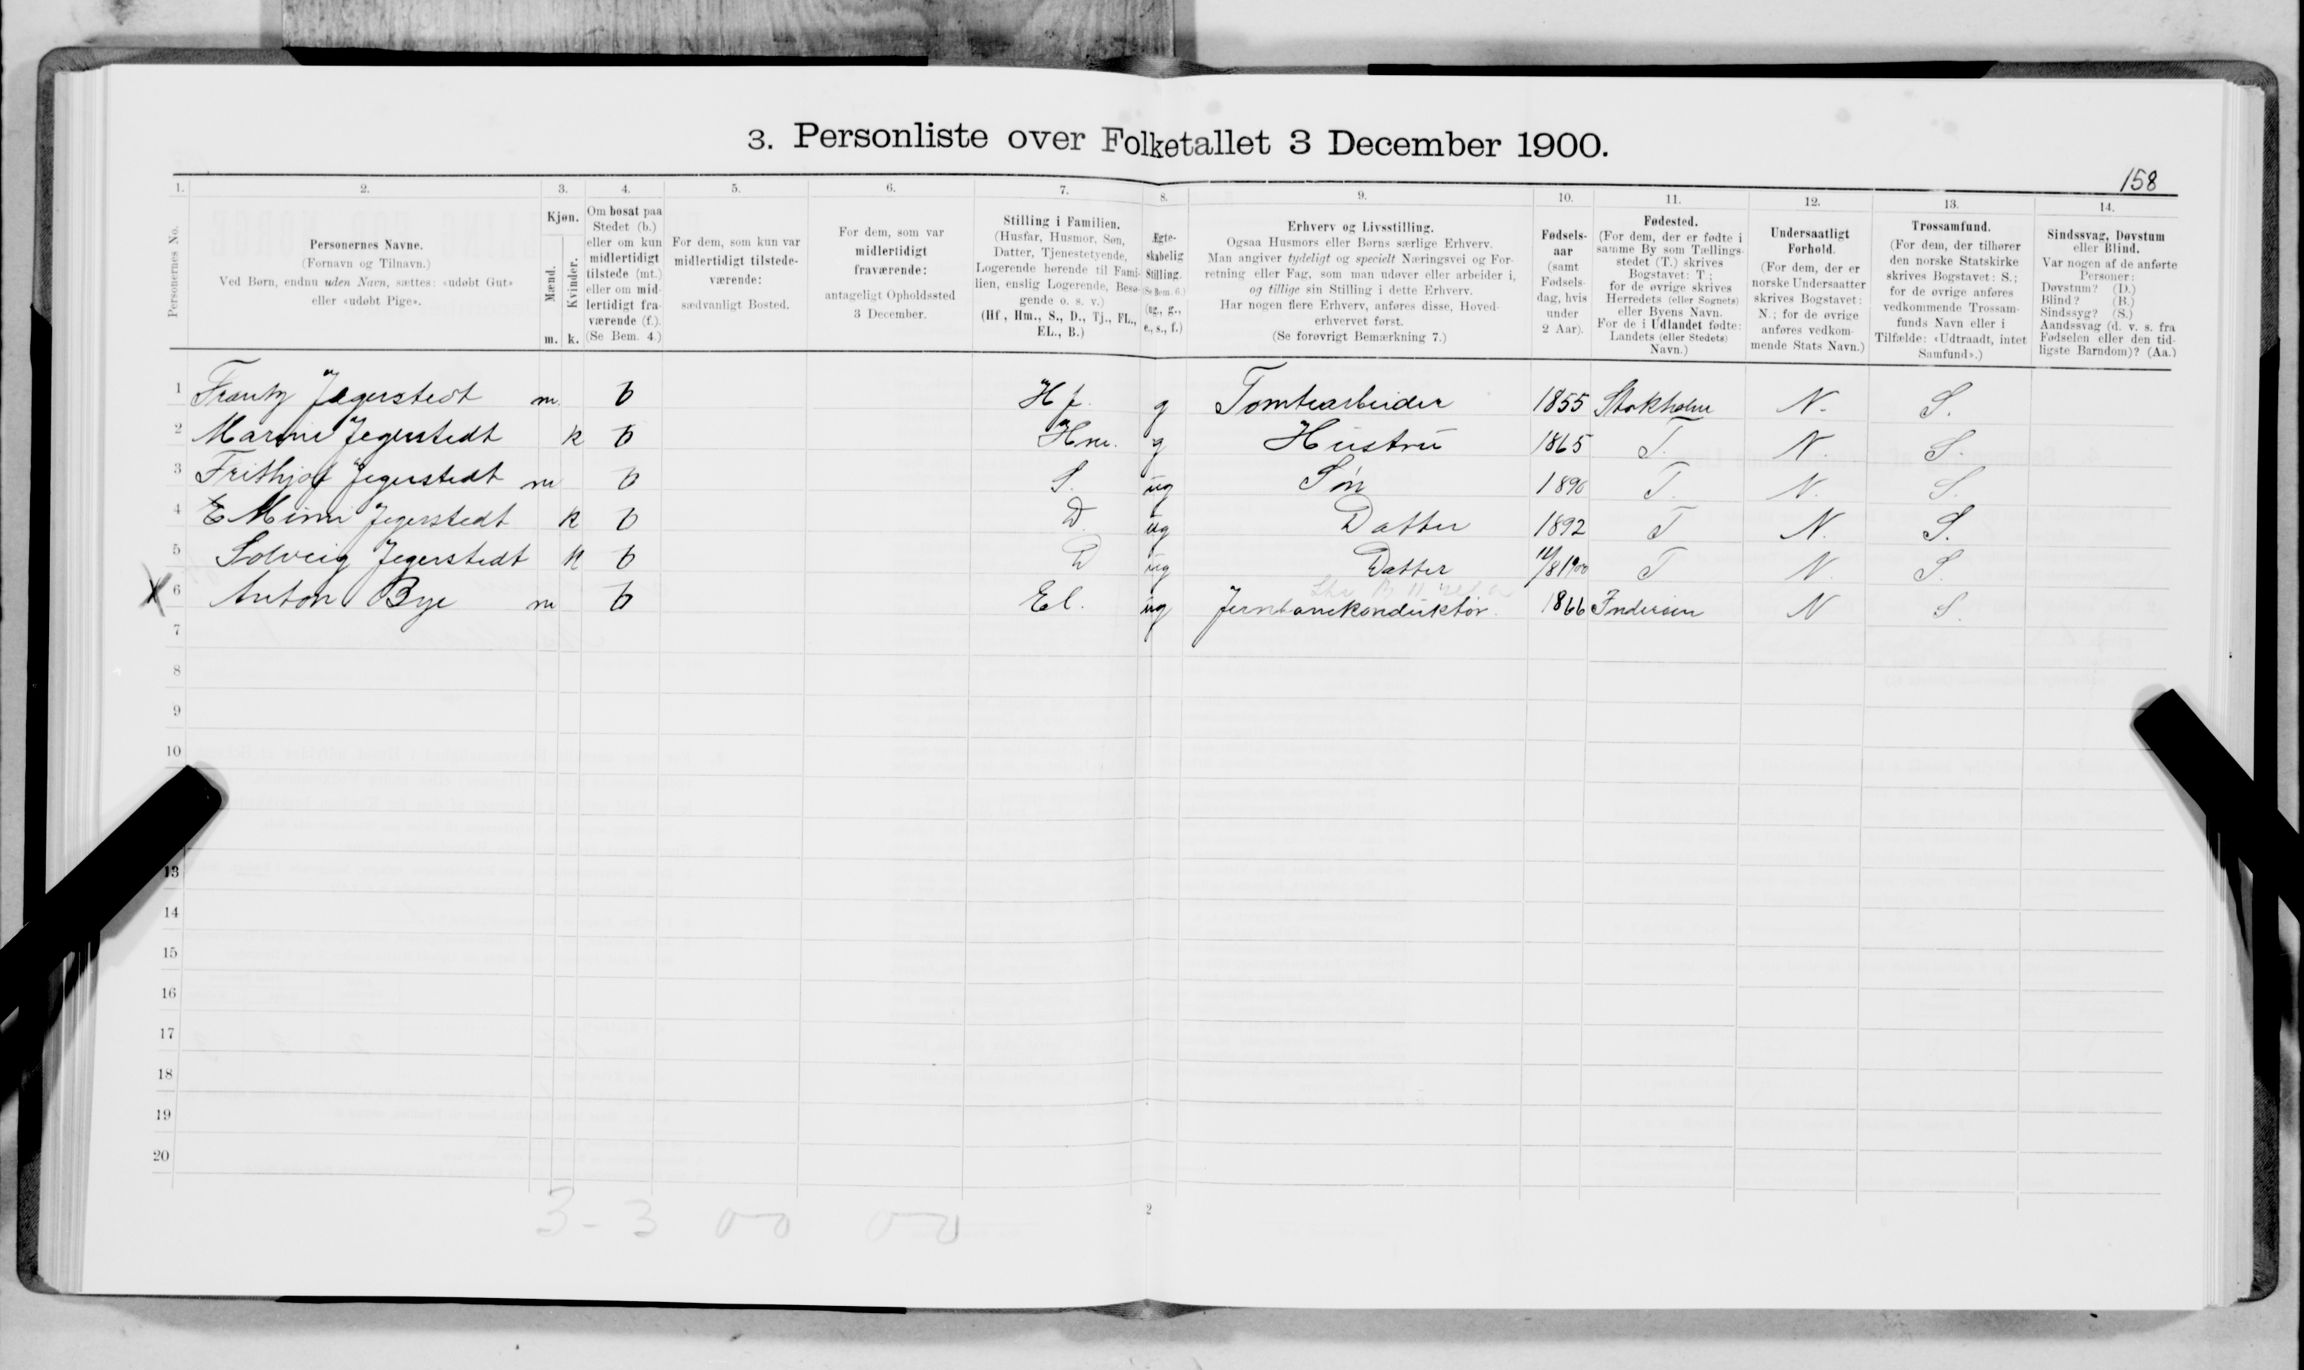 3. Personliste over Folketallet 3 December 1900.
158
1. 2. 3. 4. 5. 6. 7. 8. 9. 10. 11. 12. 13. 14.
Personernes No.
Personernes Navne.
(Fornavn og Tilnavn.)
Ved Børn, endnu uden Navn, sættes: «udøbt Gut»
eller «udøbt Pige».
Kjøn.
Mænd.
Kvinder.
m. k.
Om bosat paa
Stedet (b.)
eller om kun
midlertidigt
tilstede (mt.)
eller om mid-
lertidigt fra-
værende (f.).
(Se Bem. 4.)
For dem, som kun var
midlertidigt tilstede-
værende:
sædvanligt Bosted.
For dem, som var
midlertidigt
fraværende:
antageligt Opholdssted
3 December.
Stilling i Familien.
(Husfar, Husmor, Søn,
Datter, Tjenestetyende,
Logerende hørende til Fami-
lien, enslig Logerende, Besø-
gende o. s. v.)
(Hf., Hm., S., D., Tj., FL.,
EL., B.)
Ægte-
skabelig
Stilling.
(Se Bem. 6.)
(ug., g.,
e., s., f.)
Erhverv og Livsstilling.
Ogsaa Husmors eller Børns særlige Erhverv.
Man angiver tydeligt og specielt Næringsvei og For-
retning eller Fag, som man udøver eller arbeider i,
og tillige sin Stilling i dette Erhverv.
Har nogen flere Erhverv, anføres disse, Hoved-
erhvervet først.
(Se forøvrigt Bemærkning 7.)
Fødsels-
aar
(samt
Fødsels-
dag, hvis
under
2 Aar).
Fødested.
(For dem, der er fødte i
samme By som Tællings-
stedet (T.) skrives
Bogstavet: T.;
for de øvrige skrives
Herredets (eller Sognets)
eller Byens Navn.
For de i Udlandet fødte:
Landets (eller Stedets)
Navn.)
Undersaatligt
Forhold.
(For dem, der er
norske Undersaatter
skrives Bogstavet:
N.; for de øvrige
anføres vedkom-
mende Stats Navn.)
Trossamfund.
(For dem, der tilhører
den norske Statskirke
skrives Bogstavet: S.;
for de øvrige anføres
vedkommende Trossam-
funds Navn eller i
Tilfælde: «Udtraadt, intet
Samfund».)
Sindssvag, Døvstum
eller Blind.
Var nogen af de anførte
Personer:
Døvstum? (D.)
Blind? (B.)
Sindssyg? (S.)
Aandssvag (d. v. s. fra
Fødselen eller den tid-
ligste Barndom)? (Aa.)
1 Frantz Jægerstedt m. b Hf. g Tomtearbeider 1855 Stokholm N. S.
2 Marine Jegerstedt k b Hm. g Hustru 1865 T. N. S.
3 Frithjof Jegerstedt m b S. ug Søn 1890 T. N. S.
4 Mimi Jegerstedt k b D. ug Datter 1892 T N. S.
5 Solveig Jegerstedt k b D ug Datter 11/8 1900 T N. S.
X 6 Anton Bye m b El. ug Jernbanekonduktør. 1866 Inderøen N S.
7
8
9
10
13
14
15
16
17
18
19
20
3 - 3 00 00
2